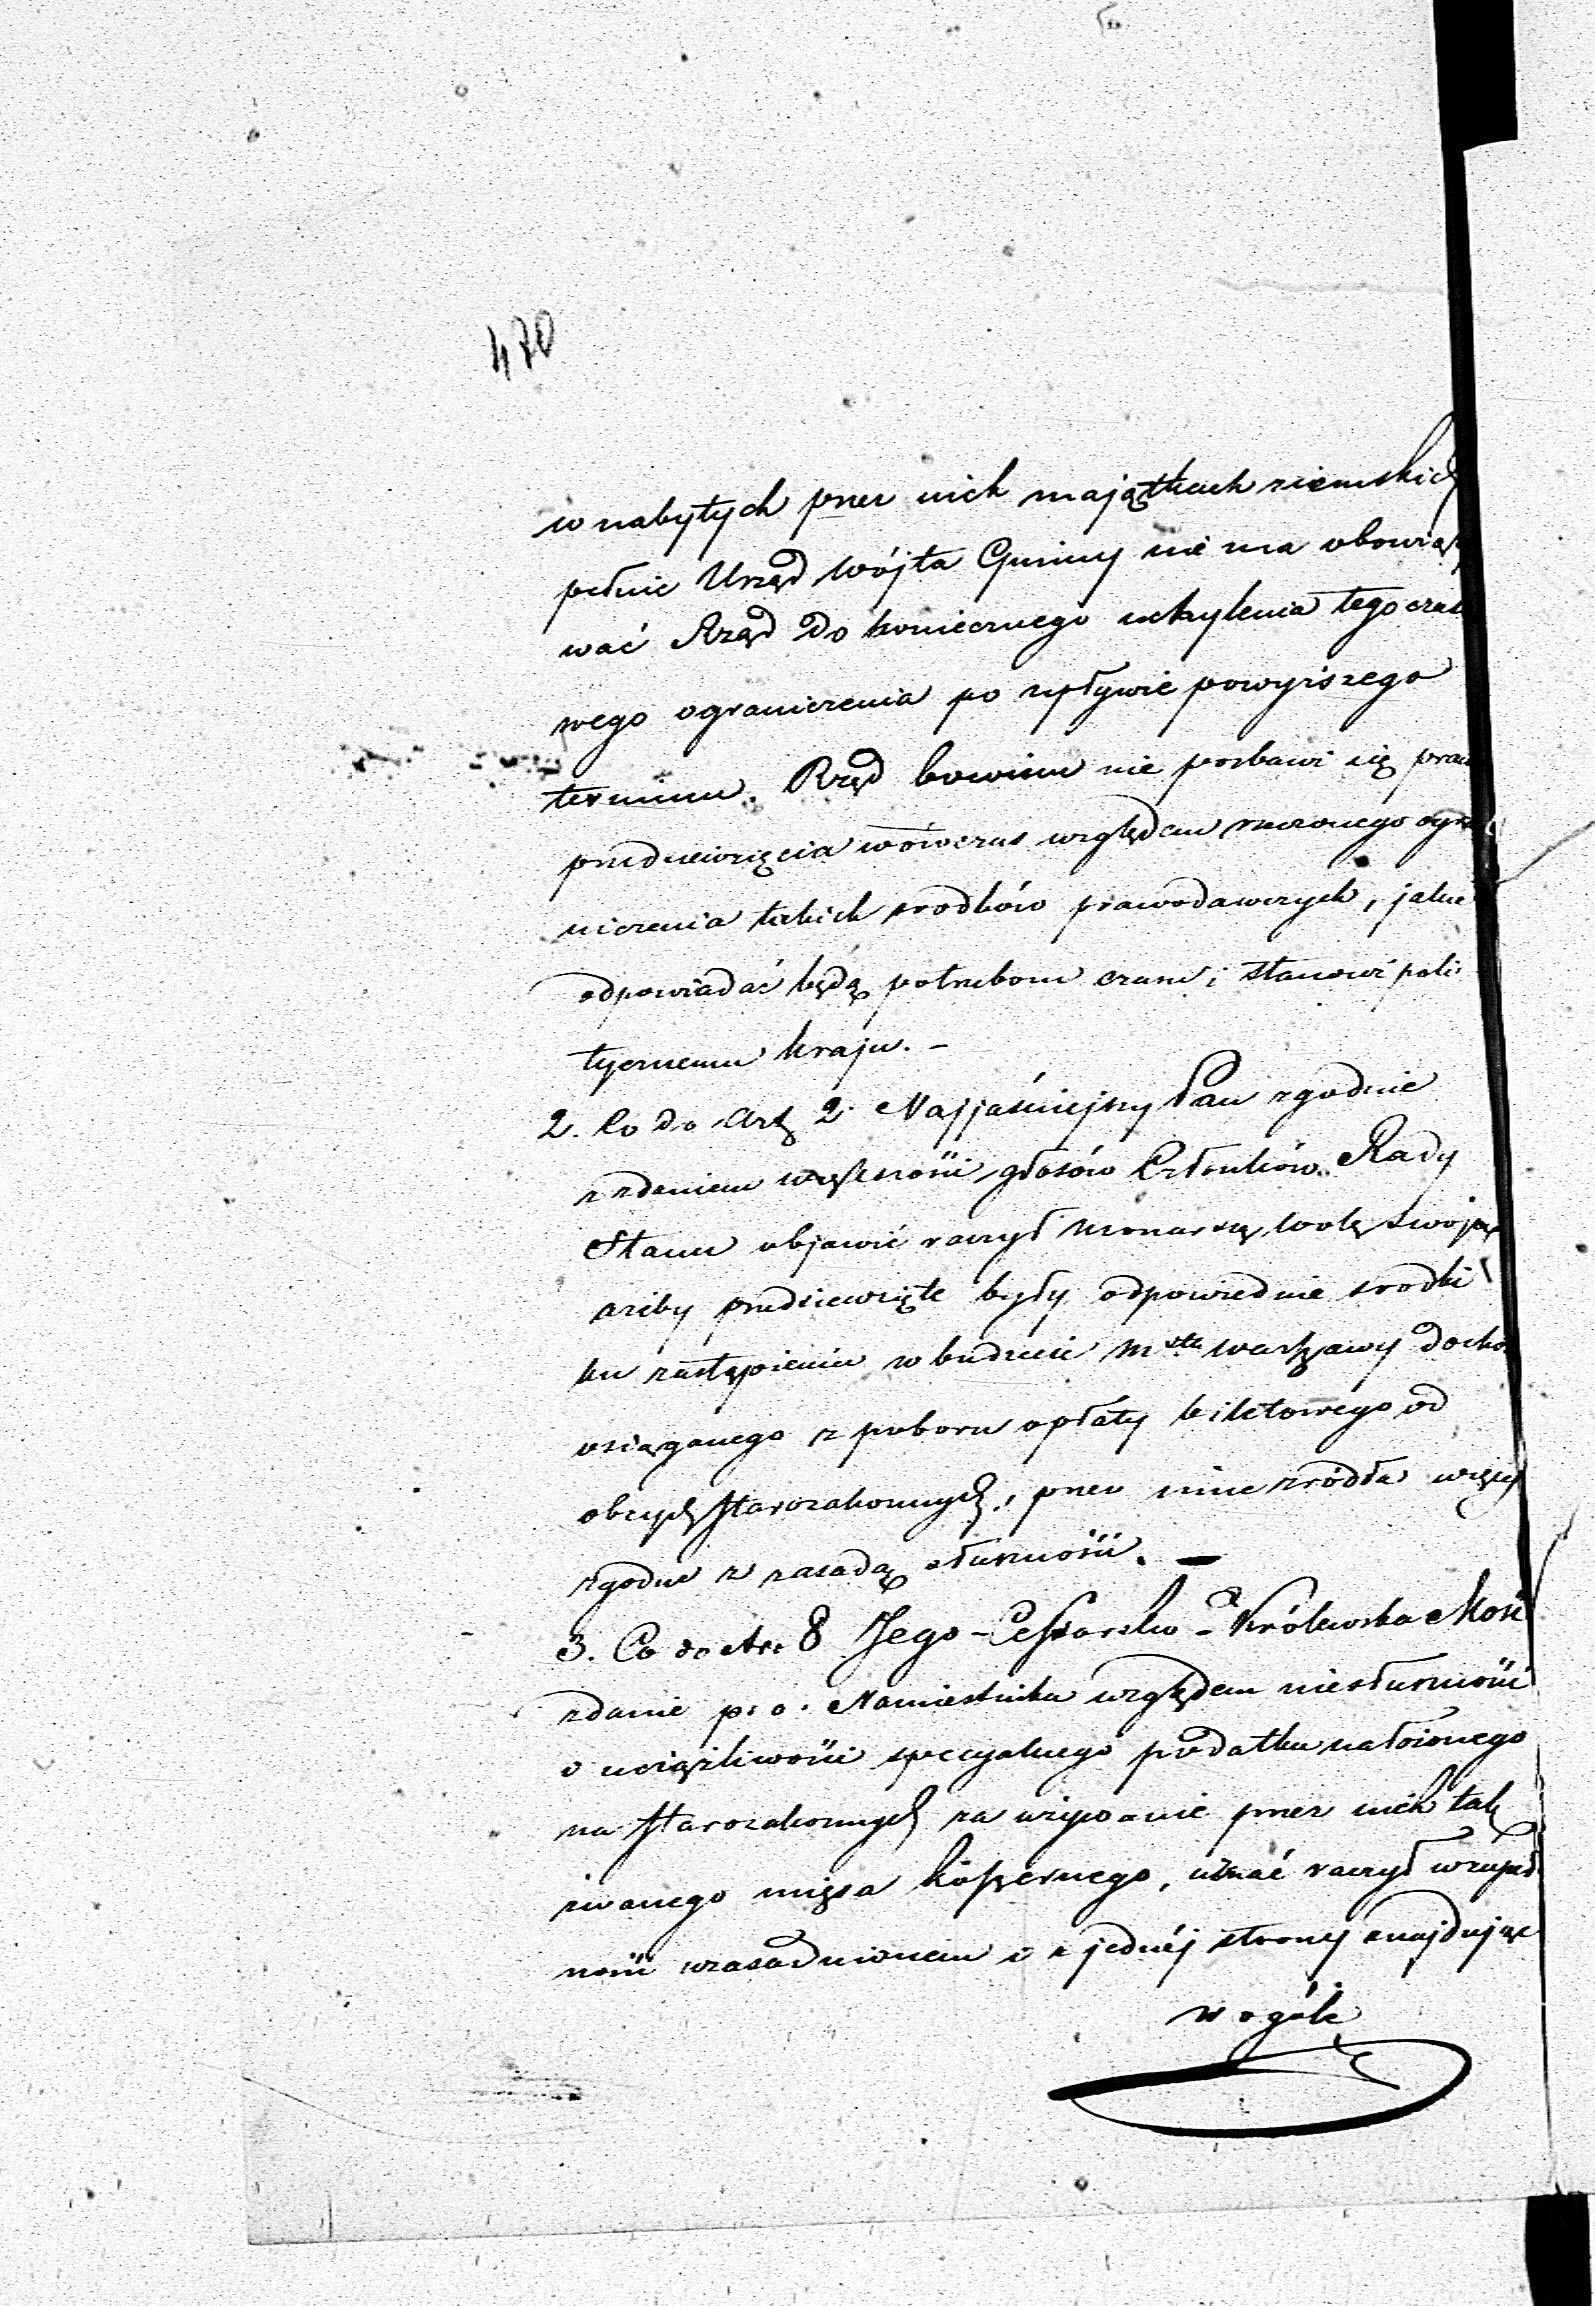 470
w nabytych przez nich majątkach ziemskich
pełnić Urząd Wójta Gminy nie ma obowiązy
wać Rząd do koniecznego uchylenia tego czaso
wego ograniczenia po upływie powyższego
terminu. Rząd bowiem nie pozbawi się praw
przedsięwzięcia wówczas względem rzeczonego ogra
niczenia takich srodków prawodawczych, jakie
odpowiadać będą potrzebom czasu i stanowi poli
tycznemu kraju. –
2. Co do Art 2. Najjaśniejszy Pan zgodnie
z zdaniem większości głosów Członków Rady
Stanu objawić raczył Monarszą wolę swoją
ażeby przedsięwzięte były odpowiednie srodki
ku zastąpieniu w budżecie Msta Warszawy docho
osiąganego z poboru opłaty biletowego od
obcych Starozakonnych, przez inne zródła więcej
zgodne z zasadą słuszności. –
3. Co do Art 8 Jego-Cesarsko-Królewska Mość
zdanie p. o. Namiestnika względem niesłuszności
i uciążliwości specyalnego podatku nałożonego
na Starozakonnych za używanie przez nich tak
zwanego mięsa koszernego, uznać raczył w zupeł
ności uzasadnionem i z jednéj strony znajdując
w ogóle